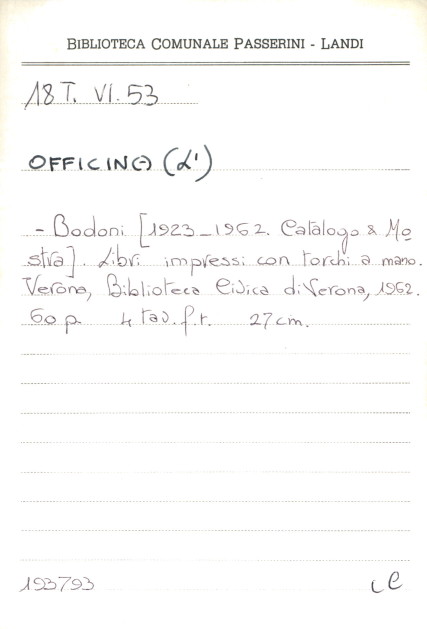 BIBLIOTECA COMUNALE PASSERINI - LANDI
18 T. VI. 53
OFFICINA (L')
- Bodoni [1923-1962. Catalogo & Mo
stra]. Libri impressi con torchi a mano.
Verona, Biblioteca Civica di Verona, 1962.
60 p. 4 tav. f. t. 27 cm.
193793